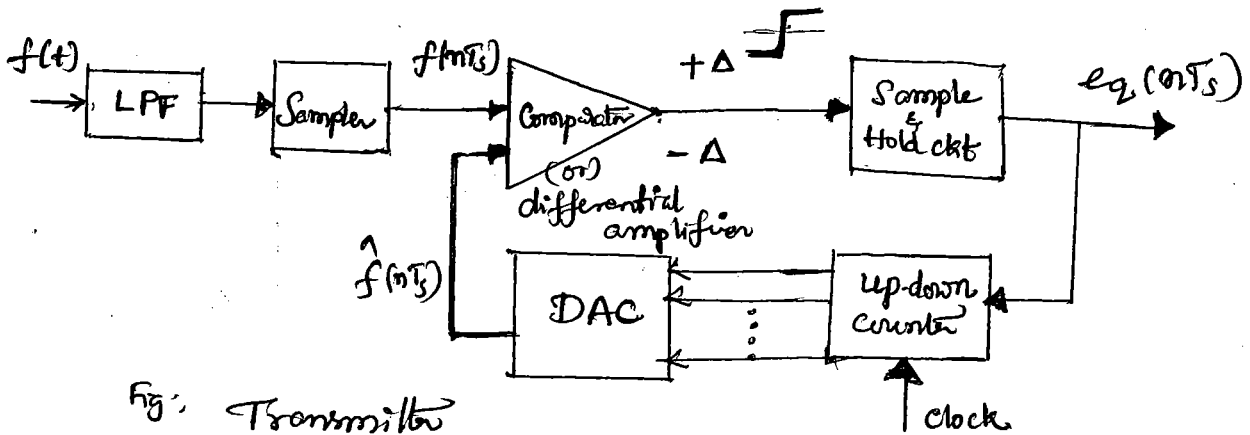 f(t)
LPF
Sampler
f(nTs)
Comparator
(or)
differential
amplifier
+Δ
-Δ
Sample
&
Hold ckt
eq(nTs)
f̂(nTs)
DAC
up-down
counter
clock
Fig:, Transmitter